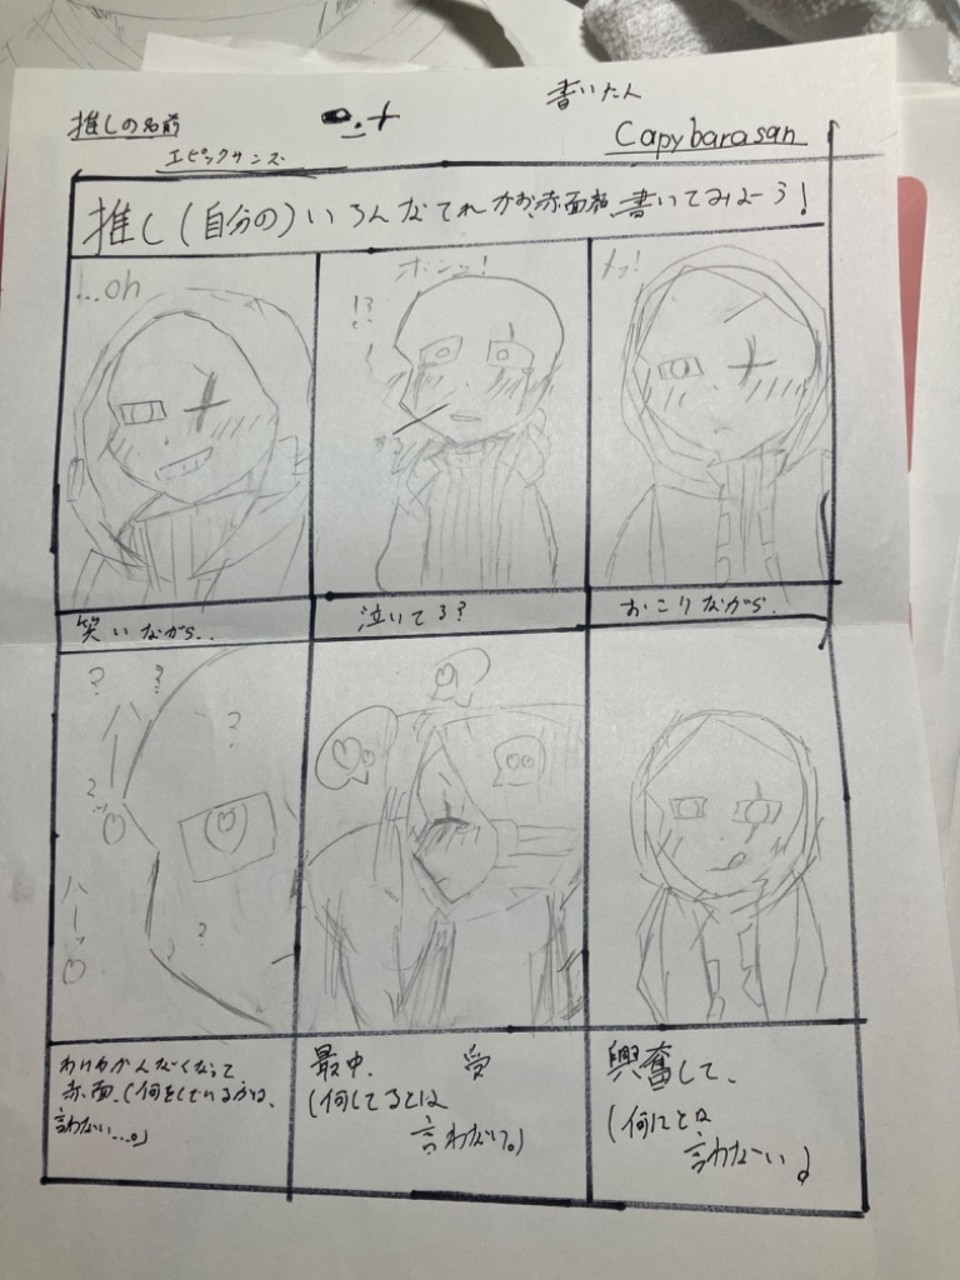 推しの名前
エピックサンズ
書いた人
Capybarasan
推し(自分の)いろんなてれかお、赤面顔、書いてみよーう!
!...oh
ボンッ!
!?
メッ!
笑いながら..
泣いてる?
おこりながら.
? ?
?
?
ハーッ♡
?
わけわかんなくなって
赤面.(何をしているかは、
言わない...。)
最中. 受
(何してるとは
言わない。)
興奮して、
(何にとは
言わなーい♪